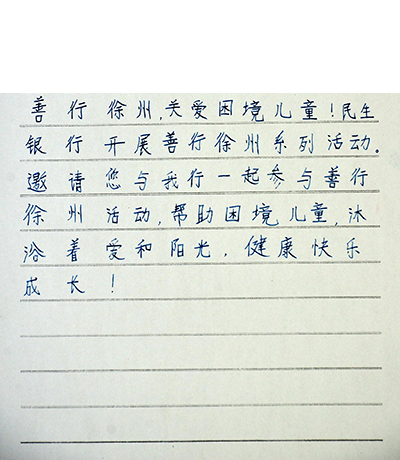 善行徐州,关爱困境儿童!民生
银行开展善行徐州系列活动。
邀请您与我行一起参与善行
徐州活动,帮助困境儿童,沐
浴着爱和阳光,健康快乐
成长!